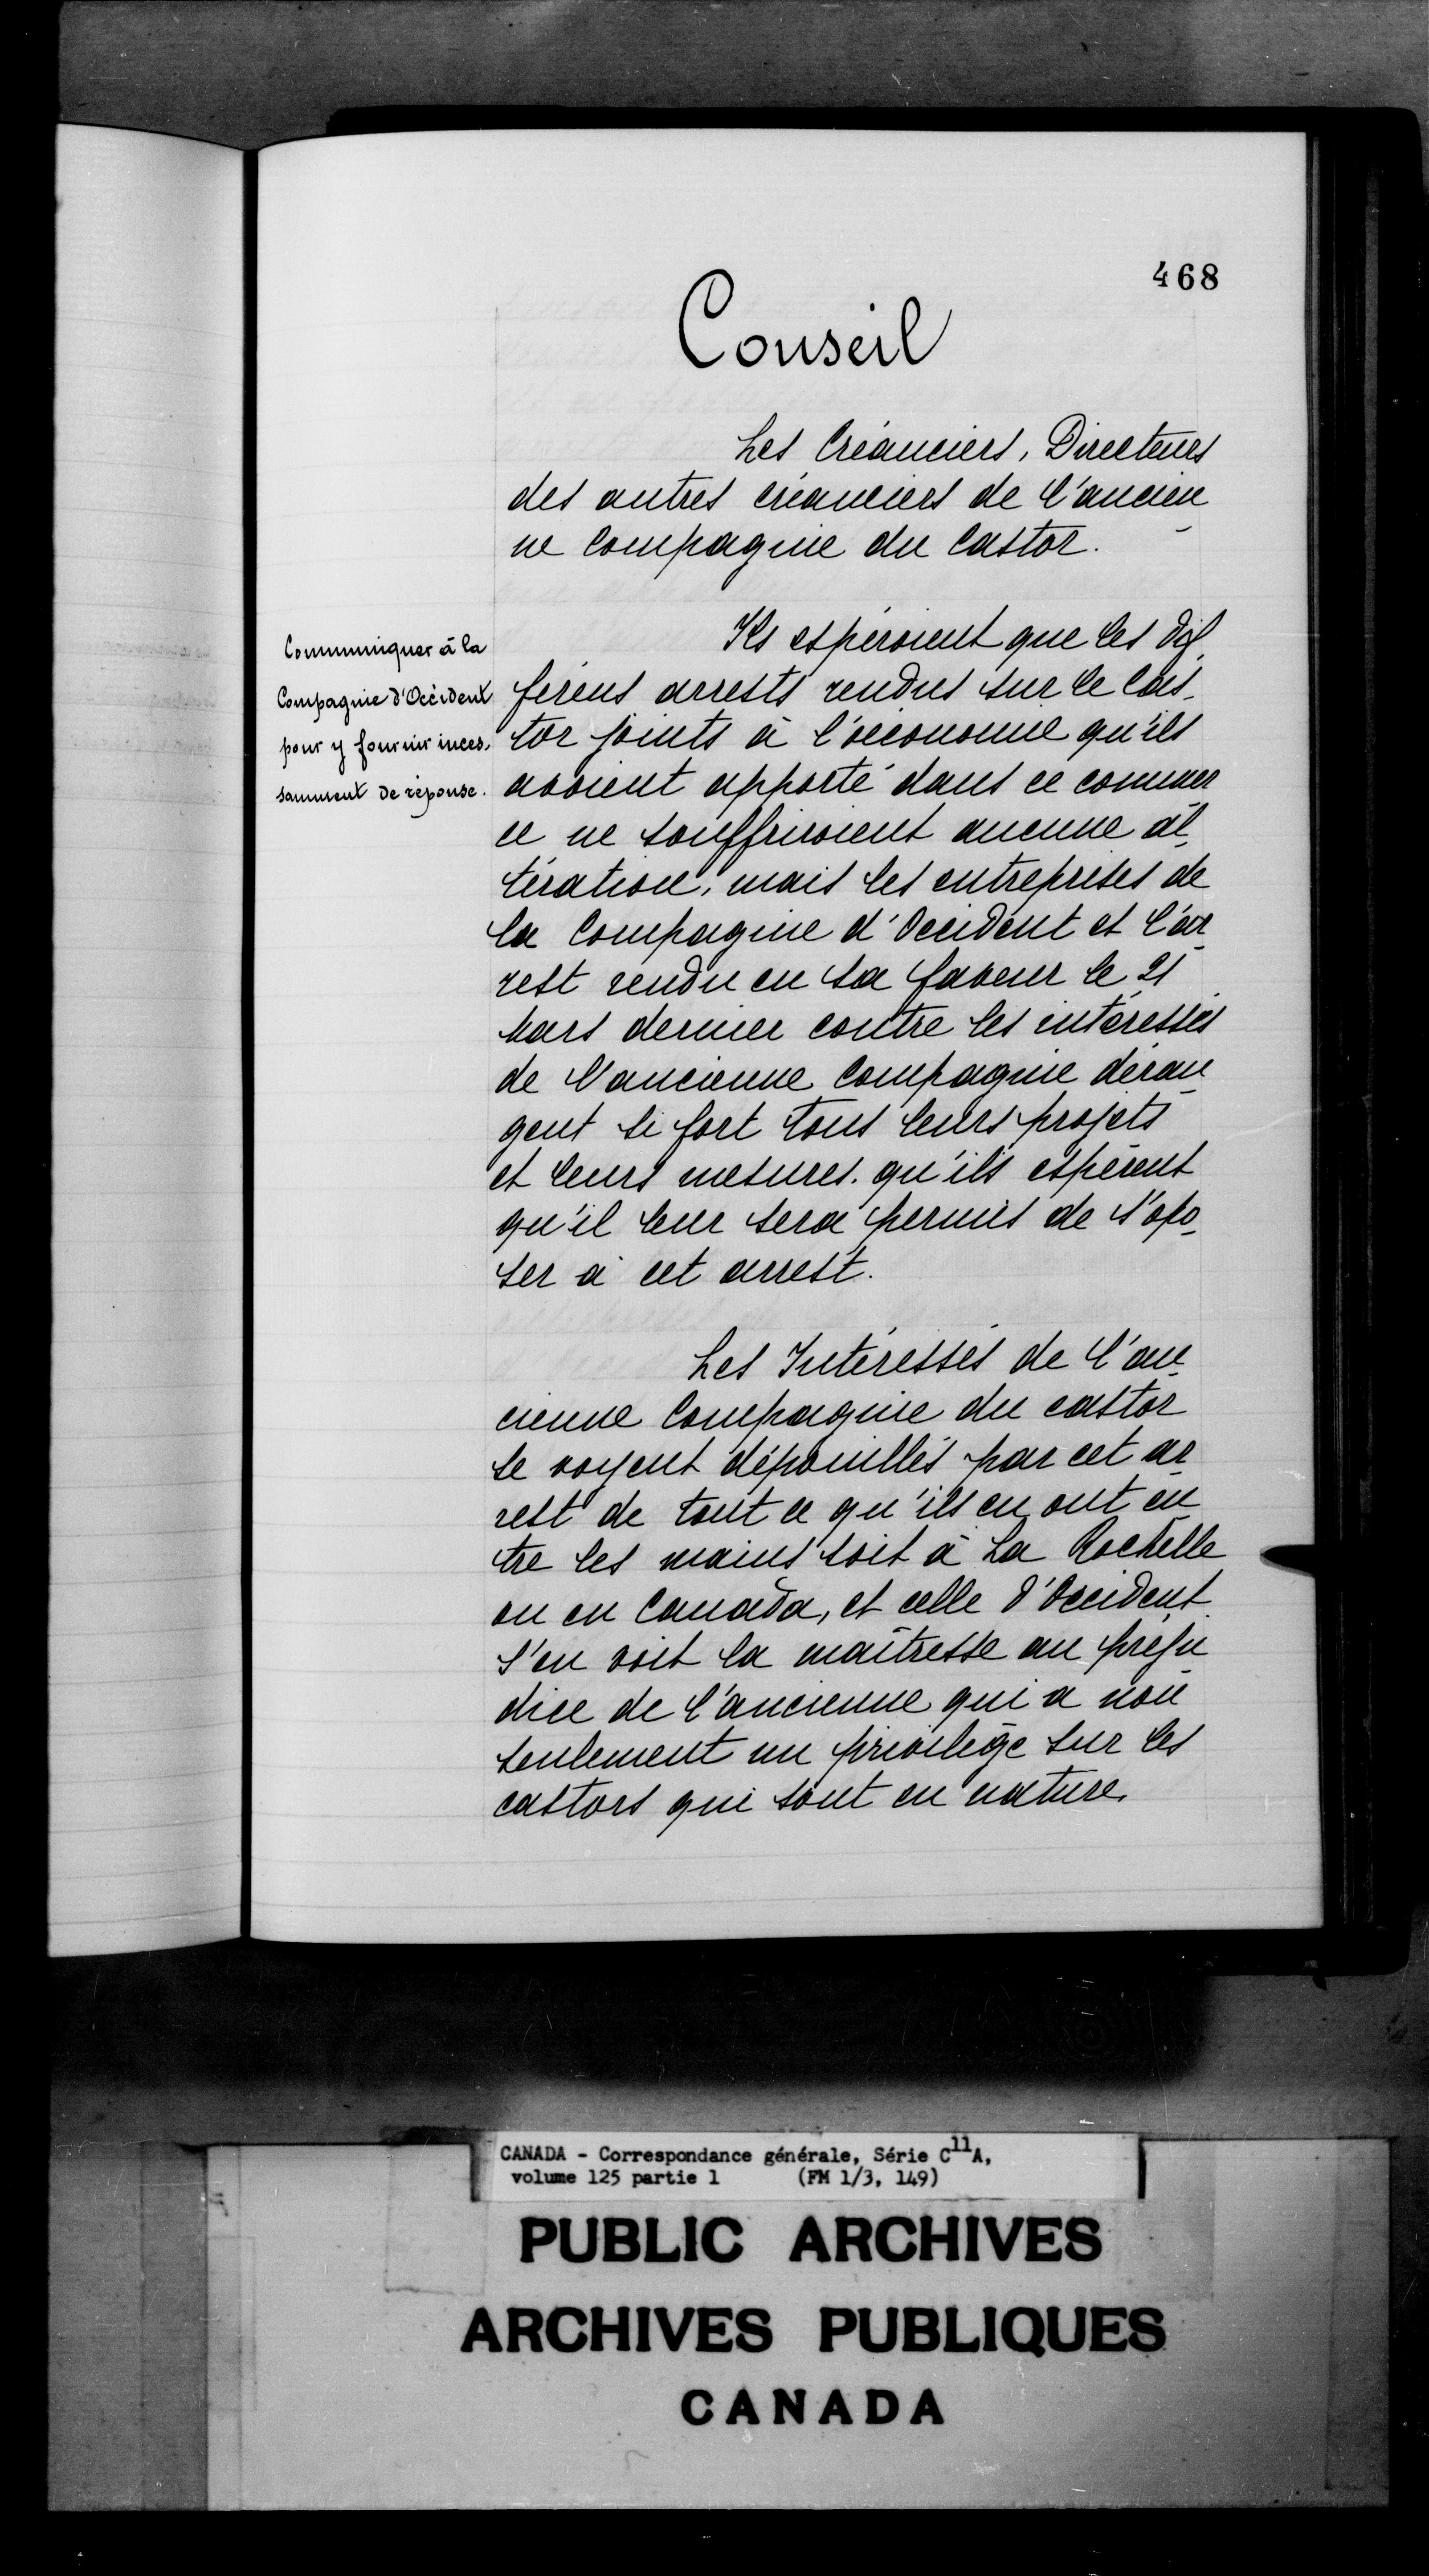 468
Conseil
Les Créanciers, Directeurs
des autres créanciers de l'ancien
ne Compagnie du Castor.
Communiquer à la
Compagnie d'Occident
pour y fournir inces-
samment de réponse.
Ils espéroient que les dif-
férens arrests rendus sur le Cas-
tor joints à l'oeconomie qu'ils
avoient apporté dans ce commer
ce ne souffriroient aucune al-
tération, mais les entreprises de
la Compagnie d'Occident et l'ar-
rest rendu en sa faveur le 21
Mars dernier contre les intéressés
de l'ancienne Compagnie déran-
gent si fort tous leurs projets
et leurs mesures. qu'ils espèrent
qu'il leur sera permis de s'opo-
ser à cet arrest.
Les Intéressés de l'an-
cienne Compagnie du castor
se voyent dépouillés par cet ar-
rest de tout ce qu'ils en ont en-
tre les mains soit à La Rochelle
ou en Canada, et celle d'Occident
s'en voit la maîtresse au préju
dice de l'ancienne qui a non
seulement un privilège sur les
castors qui sont en nature,
CANADA - Correspondance générale, Série C11A,
volume 125 partie 1 (FM 1/3, 149)
PUBLIC ARCHIVES
ARCHIVES PUBLIQUES
CANADA